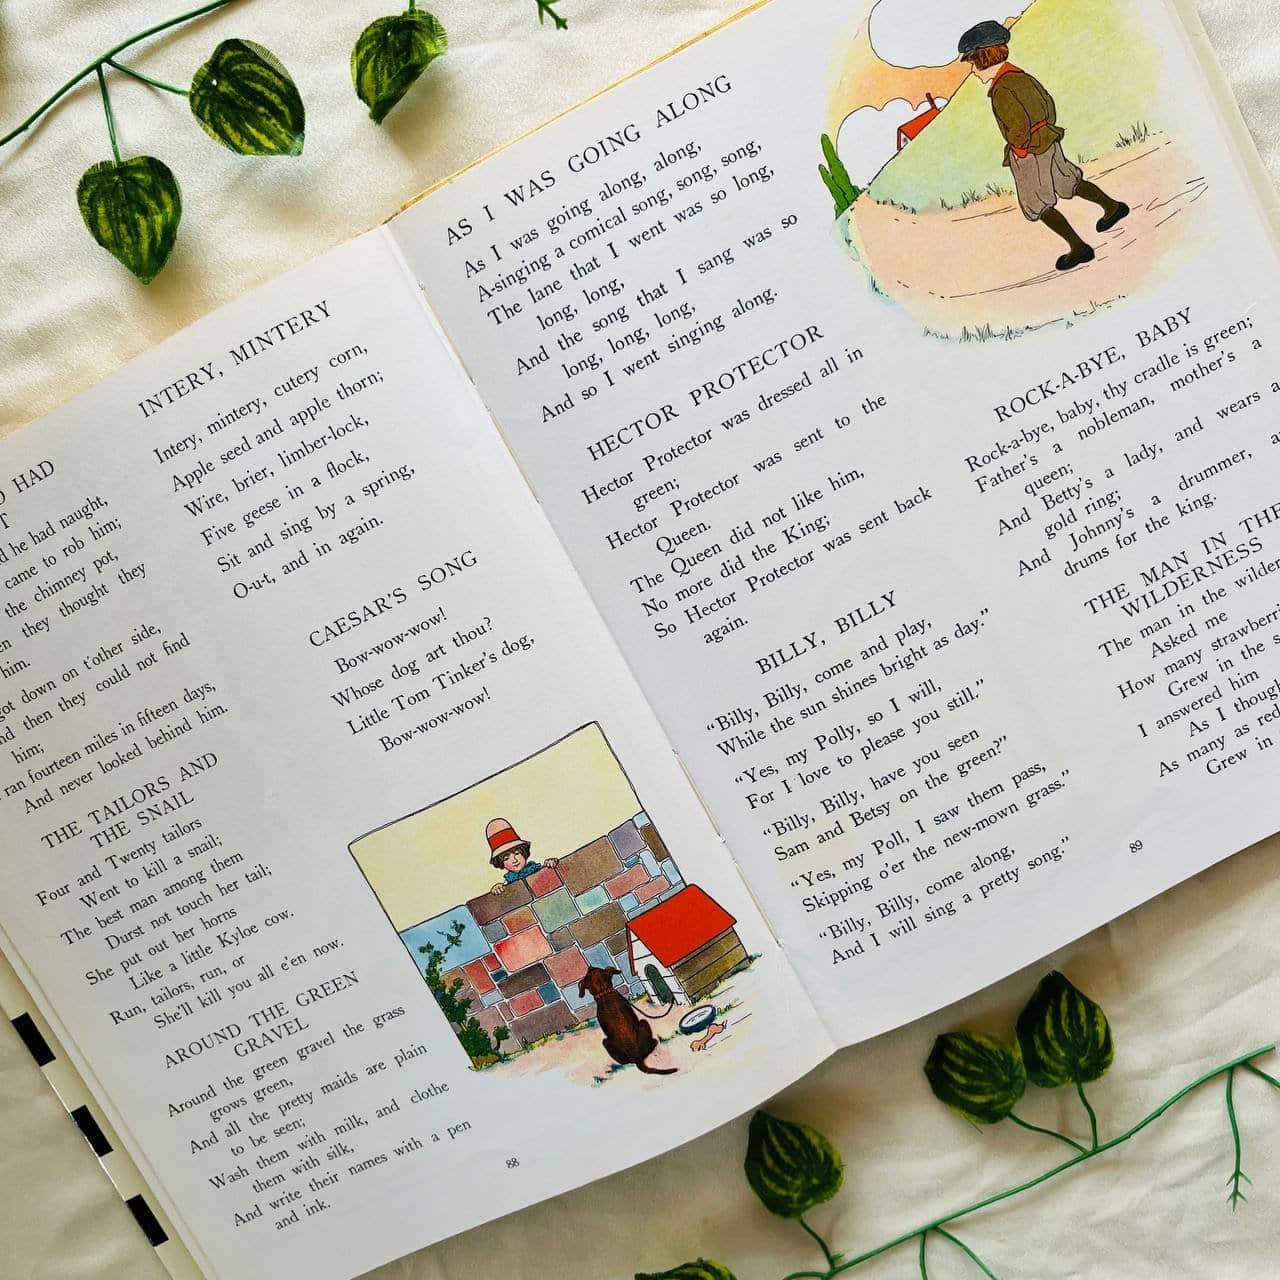 O HAD
T
d he had naught,
came to rob him;
the chimney pot,
n they thought they
him.
got down on t'other side,
nd then they could not find
him;
ran fourteen miles in fifteen days,
And never looked behind him.
THE TAILORS AND
THE SNAIL
Four and Twenty tailors
Went to kill a snail;
The best man among them
Durst not touch her tail;
She put out her horns
Like a little Kyloe cow.
Run, tailors, run, or
She'll kill you all e'en now.
AROUND THE GREEN
GRAVEL
Around the green gravel the grass
grows green,
And all the pretty maids are plain
to be seen;
Wash them with milk, and clothe
them with silk,
And write their names with a pen
and ink.
INTERY, MINTERY
Intery, mintery, cutery corn,
Apple seed and apple thorn;
Wire, brier, limber-lock,
Five geese in a flock,
Sit and sing by a spring,
O-u-t, and in again.
CAESAR'S SONG
Bow-wow-wow!
Whose dog art thou?
Little Tom Tinker's dog,
Bow-wow-wow!
88
AS I WAS GOING ALONG
As I was going along, along,
A-singing a comical song, song, song,
The lane that I went was so long,
long, long,
And the song that I sang was so
long, long, long,
And so I went singing along.
HECTOR PROTECTOR
Hector Protector was dressed all in
green;
Hector Protector was sent to the
Queen.
The Queen did not like him,
No more did the King;
So Hector Protector was sent back
again.
BILLY, BILLY
"Billy, Billy, come and play,
While the sun shines bright as day."
"Yes, my Polly, so I will,
For I love to please you still."
"Billy, Billy, have you seen
Sam and Betsy on the green?"
"Yes, my Poll, I saw them pass,
Skipping o'er the new-mown grass."
"Billy, Billy, come along,
And I will sing a pretty song."
ROCK-A-BYE, BABY
Rock-a-bye, baby, thy cradle is green;
Father's a nobleman, mother's a
queen;
And Betty's a lady, and wears a
gold ring;
And Johnny's a drummer, a
drums for the king.
THE MAN IN THE
WILDERNESS
The man in the wilder
Asked me
How many strawberri
Grew in the s
I answered him
As I though
As many as red
Grew in
89